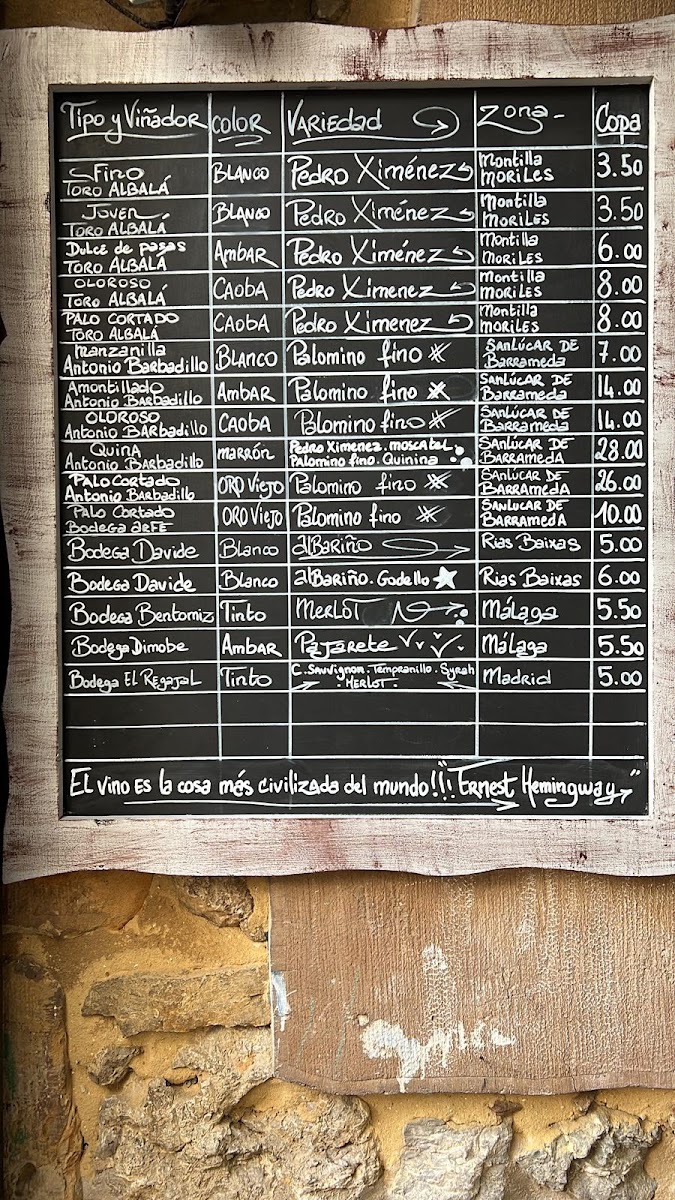 Tipo y Viñador color Variedad Zona Copa
Fino
Toro Albalá Blanco Pedro Ximénez Montilla
Moriles 3.50
Joven
Toro Albalá Blanco Pedro Ximénez Montilla
Moriles 3.50
Dulce de pasas
Toro Albalá Ambar Pedro Ximénez Montilla
Moriles 6.00
Oloroso
Toro Albalá Caoba Pedro Ximenez Montilla
Moriles 8.00
Palo Cortado
Toro Albalá Caoba Pedro Ximenez Montilla
Moriles 8.00
Manzanilla
Antonio Barbadillo Blanco Palomino fino Sanlúcar de
Barrameda 7.00
Amontillado
Antonio Barbadillo Ambar Palomino fino Sanlúcar de
Barrameda 14.00
Oloroso
Antonio Barbadillo Caoba Palomino fino Sanlúcar de
Barrameda 14.00
Quina
Antonio Barbadillo marrón Pedro Ximenez. moscatel
Palomino fino. Quinina Sanlúcar de
Barrameda 28.00
Palo Cortado
Antonio Barbadillo Oro Viejo Palomino fino Sanlúcar de
Barrameda 26.00
Palo Cortado
Bodega arfe Oro Viejo Palomino fino Sanlucar de
Barrameda 10.00
Bodega Davide Blanco alBariño Rias Baixas 5.00
Bodega Davide Blanco alBariño. Godello Rias Baixas 6.00
Bodega Bentomiz Tinto Merlot Málaga 5.50
Bodega Dimobe Ambar Pajarete Málaga 5.50
Bodega El Regajal Tinto C. Sauvignon. Tempranillo. Syrah
. Merlot. Madrid 5.00
El vino es la cosa más civilizada del mundo!!! "Ernest Hemingway"